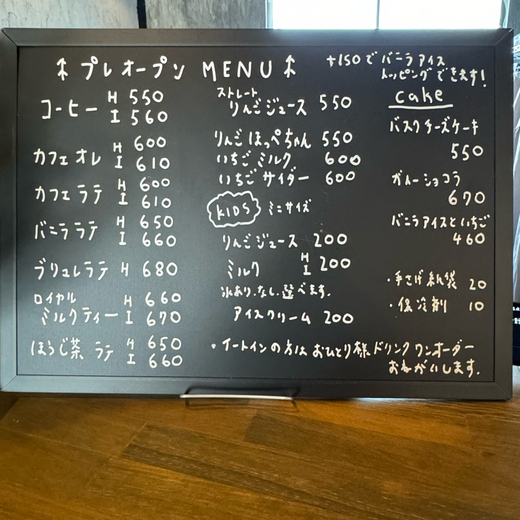 ↑ プレオープン MENU ↑
コーヒー H 550
I 560
カフェオレ H 600
I 610
カフェラテ H 600
I 610
バニララテ H 650
I 660
ブリュレラテ H 680
ロイヤル
ミルクティー H 660
I 670
ほうじ茶 ラテ H 650
I 660
ストレート
りんごジュース 550
りんごほっぺちゃん 550
いちごミルク 600
いちごサイダー 600
KIDS ミニサイズ
りんごジュース 200
ミルク H
I 200
氷あり、なし、選べます。
アイスクリーム 200
+150で バニラアイス
トッピングできます!
cake
バスクチーズケーキ
550
ガトーショコラ
670
バニラアイスといちご
460
・手さげ紙袋 20
・保冷剤 10
・イートインの方は おひとり様 ドリンク ワンオーダー
おねがいします。